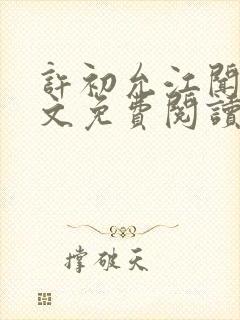 許初允江聞
文免費閱讀
撑破天